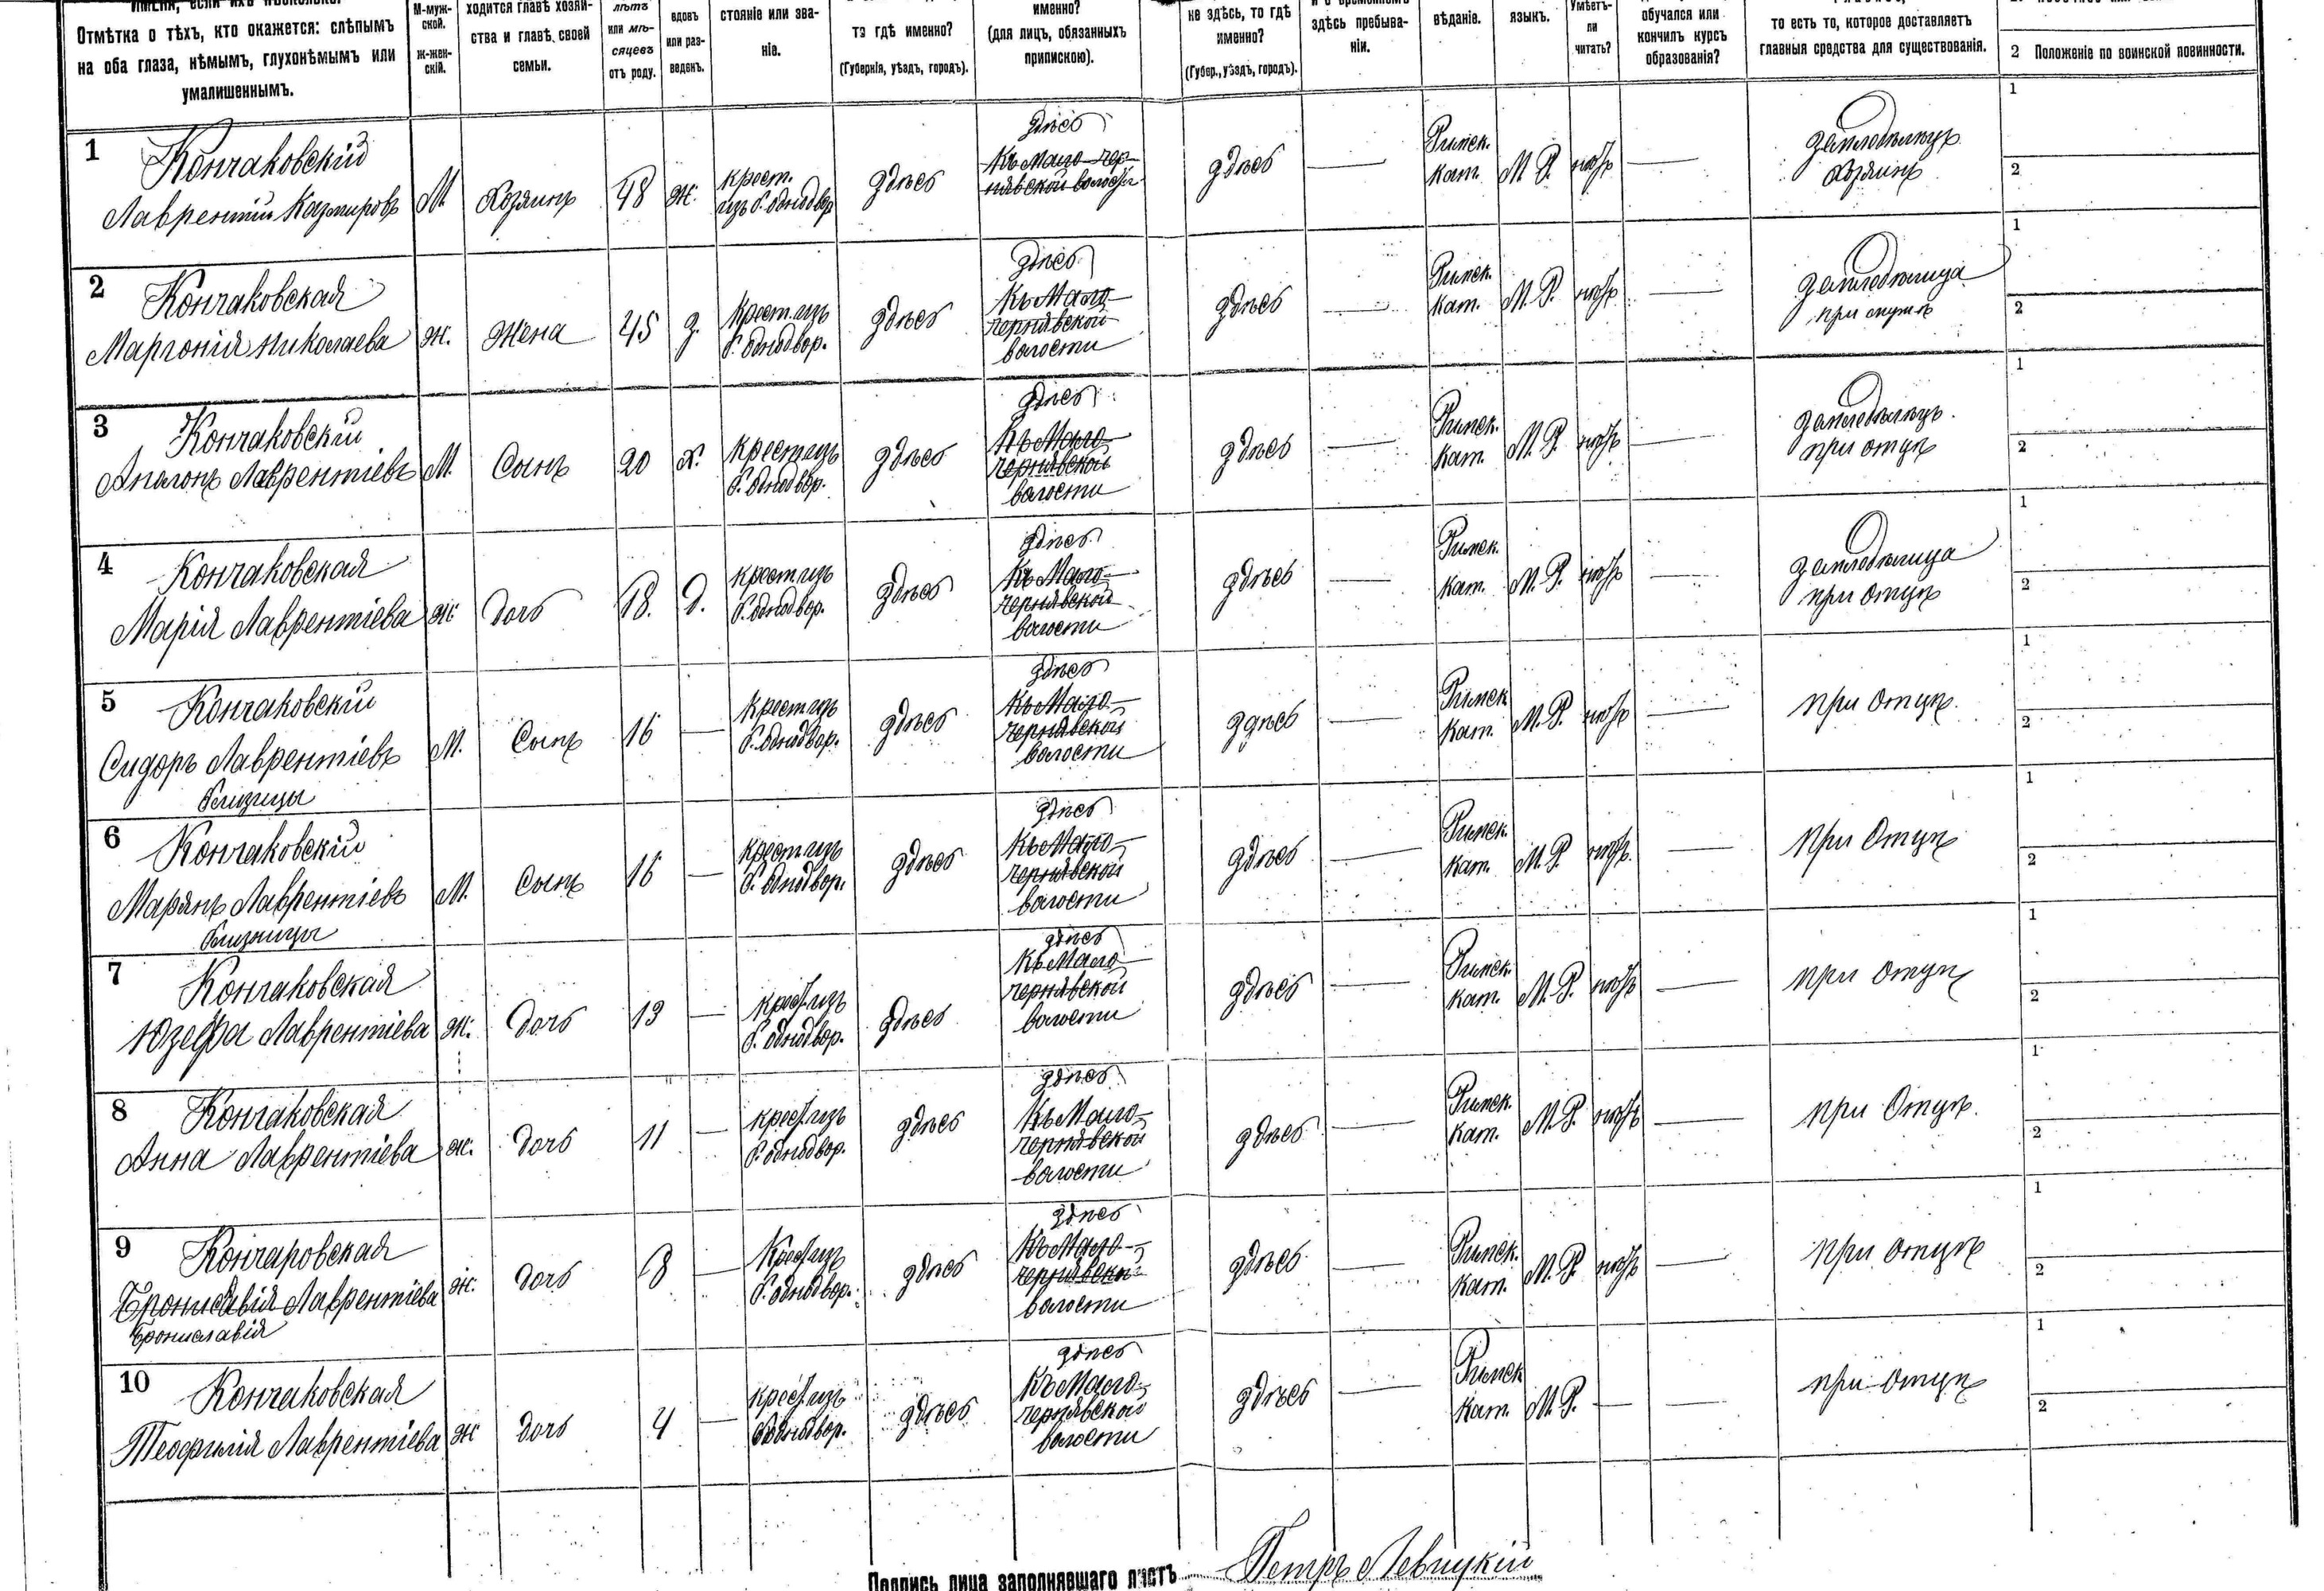 Отмѣтка о тѣхъ, кто окажется: слѣпымъ
на оба глаза, нѣмымъ, глухонѣмымъ или
умалишеннымъ.
М-муж-
ской.
Ж-жен-
скій.
ходится главѣ хозяй-
ства и главѣ своей
семьи.
лѣтъ
или мѣ-
сяцевъ
отъ роду.
вдовъ
или раз-
веденъ.
стояніе или зва-
ніе.
то гдѣ именно?
(Губернія, уѣздъ, городъ).
именно?
(для лицъ, обязанныхъ
припискою).
не здѣсь, то гдѣ
именно?
(Губер., уѣздъ, городъ).
и о временномъ
здѣсь пребыва-
ніи.
вѣданіе.
языкъ.
Умѣетъ-
ли
читать?
обучался или
кончилъ курсъ
образованія?
то есть то, которое доставляетъ
главныя средства для существованія.
2 Положеніе по воинской повинности.
1
Кончаковскій
Лаврентій Казмировъ
М.
Хозяинъ
48
ж.
крест.
изъ б. однодвор
здѣсь
здѣсь
Къ Мало-Чер-
нявской волости
здѣсь
—
Римск.
кат.
М. Р.
нѣтъ
—
земледѣлецъ
хозяинъ
1
2
2
Кончаковская
Маргонія Николаева
ж.
жена
45
з.
крест. изъ
б. однодвор.
здѣсь
здѣсь
Къ Мало-
чернявской
волости
здѣсь
—
Римск.
кат.
М. Р.
нѣтъ
—
земледѣлица
при мужѣ
1
2
3
Кончаковскій
Аполонъ Лаврентіевъ
М.
Сынъ
20
х.
крест. изъ
б. однодвор.
здѣсь
здѣсь
Къ Мало-
чернявской
волости
здѣсь
—
Римск.
кат.
М. Р.
нѣтъ
—
земледѣлецъ
при отцѣ
1
2
4
Кончаковская
Марія Лаврентіева
ж.
дочь
18.
д.
крест. изъ
б. однодвор.
здѣсь
здѣсь
Къ Мало-
чернявской
волости
здѣсь
—
Римск.
кат.
М. Р.
нѣтъ
—
земледѣлица
при отцѣ
1
2
5
Кончаковскій
Сидоръ Лаврентіевъ
близнецы
М.
Сынъ
16
—
крест. изъ
б. однодвор.
здѣсь
здѣсь
Къ Мало-
чернявской
волости
здѣсь
—
Римск
кат.
М. Р.
нѣтъ
—
при отцѣ
1
2
6
Кончаковскій
Марянъ Лаврентіевъ
близнецы
М.
Сынъ
16
—
крест. изъ
б. однодвор.
здѣсь
здѣсь
Къ Мало-
чернявской
волости
здѣсь
—
Римск.
кат.
М. Р.
нѣтъ
—
при отцѣ
1
2
7
Кончаковская
Юзефа Лаврентіева
ж.
дочь
13
—
крест. изъ
б. однодвор.
здѣсь
здѣсь
Къ Мало-
чернявской
волости
здѣсь
—
Римск.
кат.
М. Р.
нѣтъ
—
при отцѣ
1
2
8
Кончаковская
Анна Лаврентіева
ж.
дочь
11
—
крест. изъ
б. однодвор.
здѣсь
здѣсь
Къ Мало-
чернявской
волости
здѣсь
—
Римск.
кат.
М. Р.
нѣтъ
—
при отцѣ
1
2
9
Кончаровская
Брониславія Лаврентіева
Брониславія
ж.
дочь
8
—
Крест. изъ
б. однодвор.
здѣсь
здѣсь
Къ Мало-
чернявской
волости
здѣсь
—
Римск.
кат.
М. Р.
нѣтъ
—
при отцѣ
1
2
10
Кончаковская
Теофилія Лаврентіева
ж
дочь
4
—
крест. изъ
б. однодвор.
здѣсь
здѣсь
Къ Мало-
чернявской
волости
здѣсь
—
Римск
кат.
М. Р.
—
—
при отцѣ
1
2
Подпись лица заполнявшаго листъ Петръ Левицкій